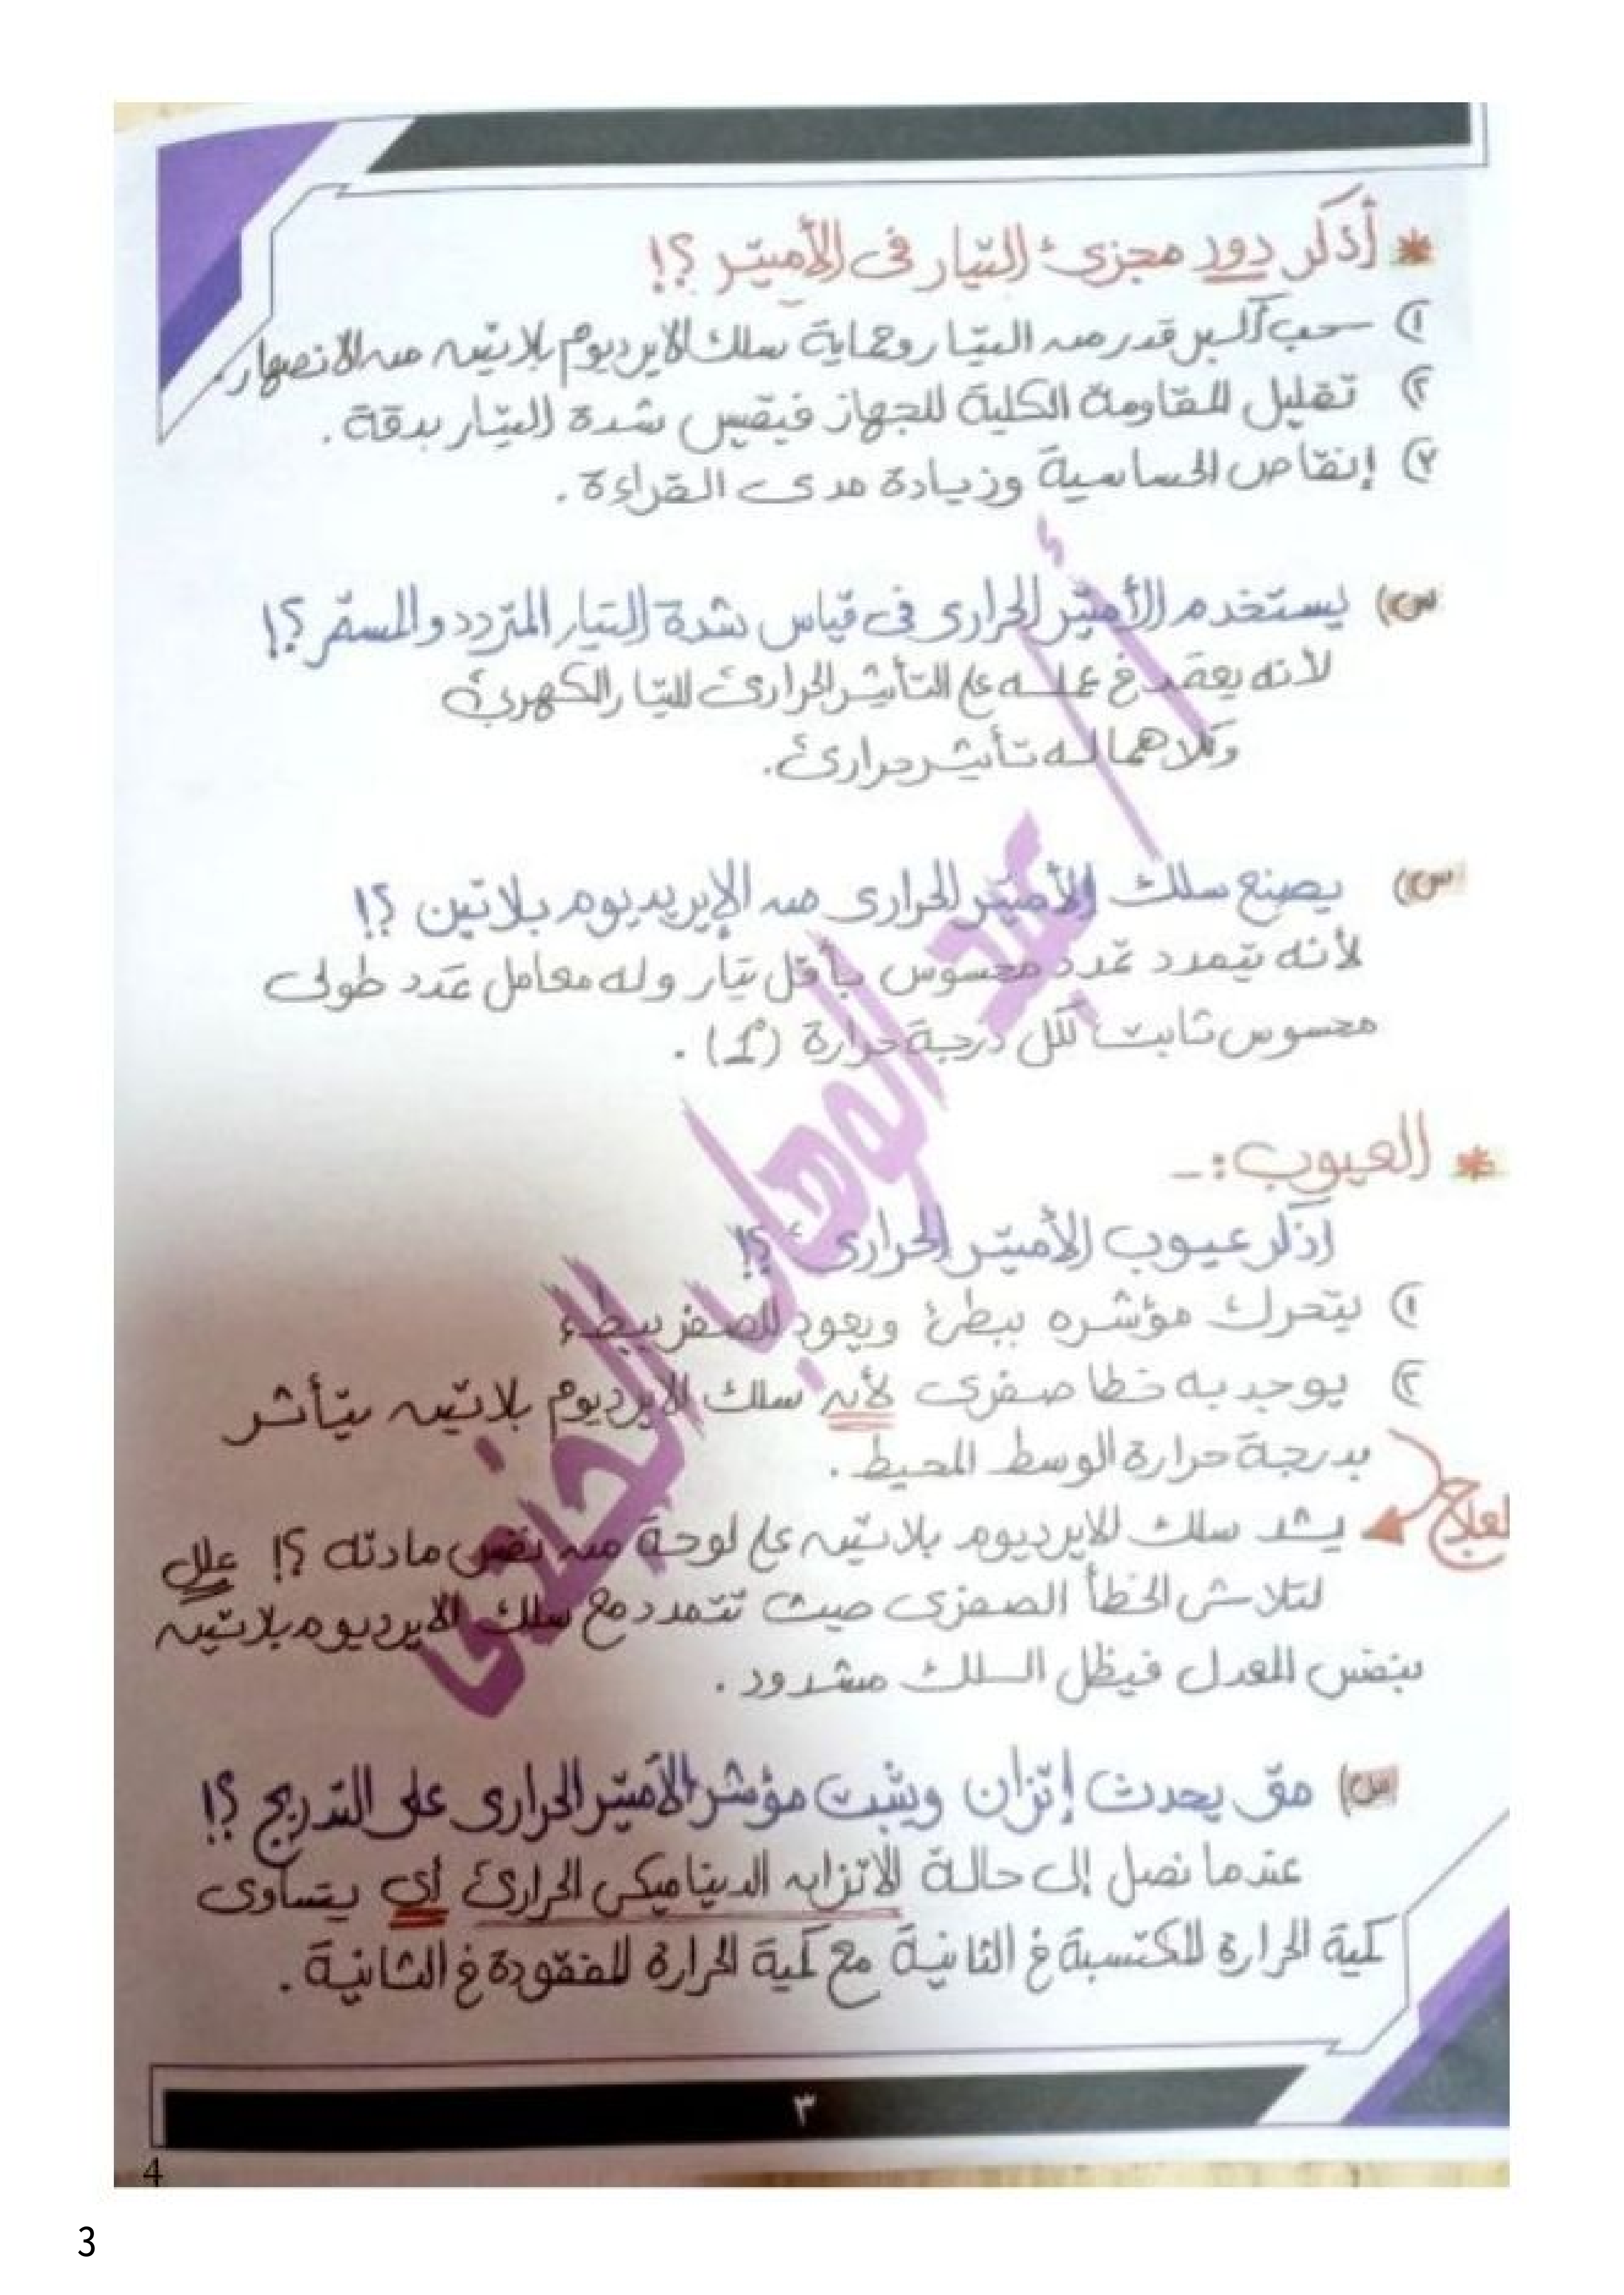 * أذكر دور مجزئ التيار فى الأميتر ؟!
١) سحب أكبر قدر من التيار وحماية سلك الايرديوم بلاتين من الانصهار.
٢) تقليل المقاومة الكلية للجهاز فيقيس شدة التيار بدقة .
٣) إنقاص الحساسية وزيادة مدى القراءة .
س) يستخدم الأميتر الحرارى فى قياس شدة التيار المتردد والمستمر ؟!
لأنه يعتمد في عمله على التأثير الحرارى للتيار الكهربي
وكلاهما له تأثير حرارى.
س) يصنع سلك الأميتر الحرارى من الإيريديوم بلاتين ؟!
لأنه يتمدد تمدد محسوس بأقل تيار وله معامل تمدد طولى
محسوس ثابت لكل درجة حرارة (1°) .
* العيوب :-
اذكر عيوب الأميتر الحرارى ؟!
١) يتحرك مؤشره ببطئ ويعود للصفر ببطء
٢) يوجد به خطا صفرى لأن سلك الايرديوم بلاتين يتأثر
بدرجة حرارة الوسط المحيط .
العلاج يشد سلك الايرديوم بلاتين على لوحة من نفس مادته ؟! علل
لتلاشى الخطأ الصفرى حيث تتمدد مع سلك الايرديوم بلاتين
بنفس المعدل فيظل السلك مشدود .
س) متى يحدث إتزان ويثبت مؤشر الأميتر الحرارى على التدريج ؟!
عندما نصل إلى حالة الاتزان الديناميكى الحرارى أي يتساوى
كمية الحرارة المكتسبة في الثانية مع كمية الحرارة المفقودة في الثانية .
أ/ عبد الوهاب الخضرى
٣
4
3